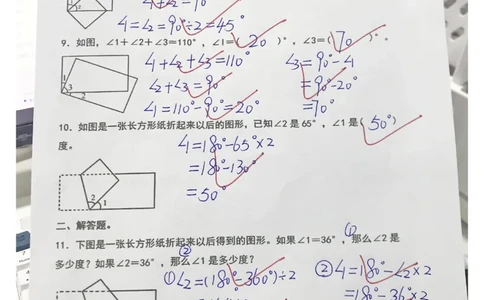 ∠1+∠2=90°
∠1=∠2=90°÷2=45°
9. 如图，∠1+∠2+∠3=110°，∠1=( 20 )°，∠3=( 70 )°。
∠1+∠2+∠3=110°
∠2+∠3=90°
∠1=110°-90°=20°
∠3=90°-∠1
=90°-20°
=70°
1
3
2
10. 如图是一张长方形纸折起来以后的图形，已知∠2是65°，∠1是( 50° )
度。
∠1=180°-65°×2
=180°-130°
=50°
2
1
二、解答题。
11. 下图是一张长方形纸折起来以后得到的图形。如果∠1=36°，①那么∠2是
多少度？如果∠2=36°，②那么∠1是多少度？
①∠2=(180°-36°)÷2
②∠1=180°-∠2×2
=180°-36°×2